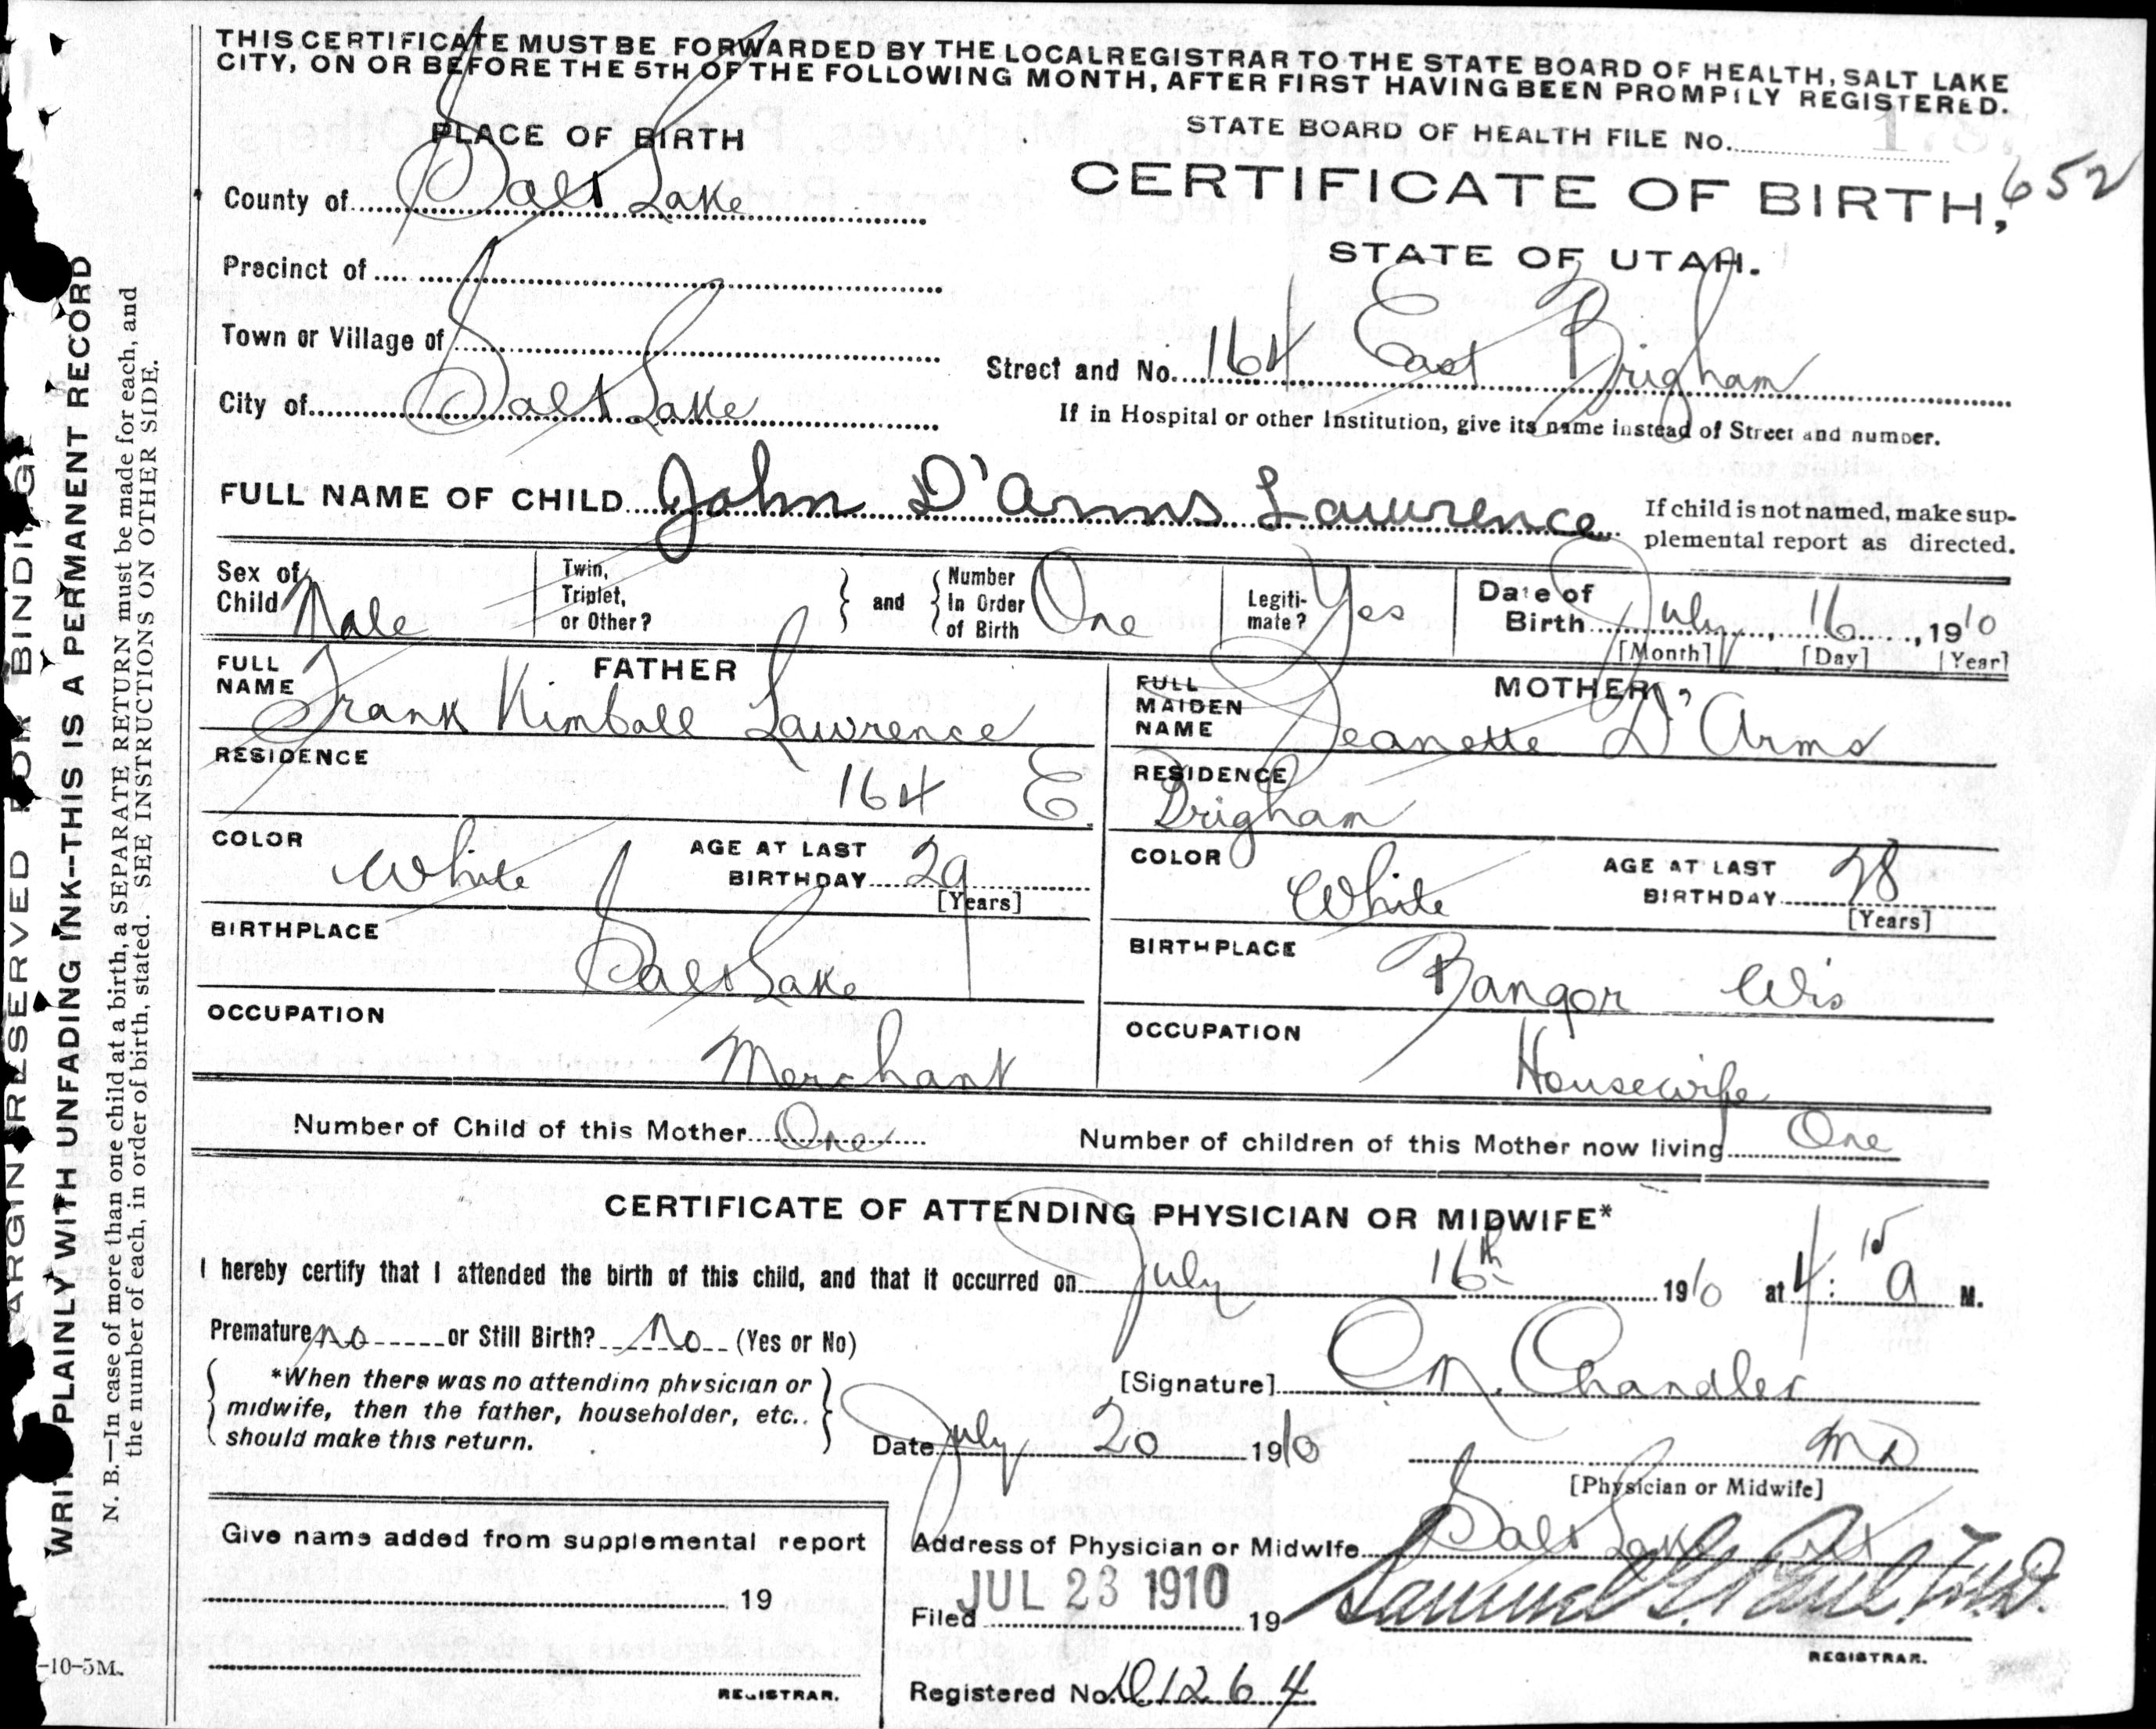 THIS CERTIFICATE MUST BE FORWARDED BY THE LOCAL REGISTRAR TO THE STATE BOARD OF HEALTH, SALT LAKE
CITY, ON OR BEFORE THE 5TH OF THE FOLLOWING MONTH, AFTER FIRST HAVING BEEN PROMPILY REGISTERED.
PLACE OF BIRTH
STATE BOARD OF HEALTH FILE No.
CERTIFICATE OF BIRTH, 652
STATE OF UTAH.
County of Salt Lake
Precinct of
Town or Village of
Street and No. 164 East Brigham
City of Salt Lake
If in Hospital or other Institution, give its name instead of Street and number.
FULL NAME OF CHILD John D'Arms Lawrence
If child is not named, make sup-
plemental report as directed.
Sex of Child Male
Twin, Triplet, or Other? and Number In Order of Birth One
Legiti-mate? Yes
Date of Birth July 16, 1910
[Month] [Day] [Year]
FATHER
FULL NAME Frank Kimball Lawrence
MOTHER
FULL MAIDEN NAME Jeanette D'Arms
RESIDENCE 164 E.
RESIDENCE Brigham
COLOR White
AGE AT LAST BIRTHDAY 29
[Years]
COLOR White
AGE AT LAST BIRTHDAY 28
[Years]
BIRTHPLACE Salt Lake
BIRTHPLACE Bangor Wis
OCCUPATION Merchant
OCCUPATION Housewife
Number of Child of this Mother One
Number of children of this Mother now living One
CERTIFICATE OF ATTENDING PHYSICIAN OR MIDWIFE*
I hereby certify that I attended the birth of this child, and that it occurred on July 16th 1910 at 4:15 a M.
Premature no or Still Birth? No (Yes or No)
*When there was no attending physician or
midwife, then the father, householder, etc..
should make this return.
[Signature] Chandler
Date July 20 1910
MD
[Physician or Midwife]
Give name added from supplemental report
19
REGISTRAR.
Address of Physician or Midwife Salt Lake
Filed JUL 23 1910 19
Samuel G. Paul, M.D.
REGISTRAR.
Registered No. D1264
MARGIN RESERVED FOR BINDING
WRITE PLAINLY WITH UNFADING INK--THIS IS A PERMANENT RECORD
N. B.—In case of more than one child at a birth, a SEPARATE RETURN must be made for each, and
the number of each, in order of birth, stated. SEE INSTRUCTIONS ON OTHER SIDE.
-10-5M.